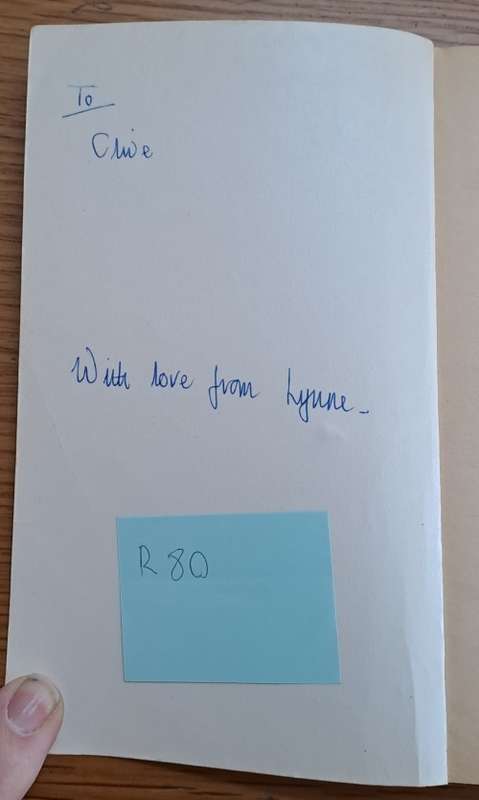 To
Clive
With love from Lynne-
R 80